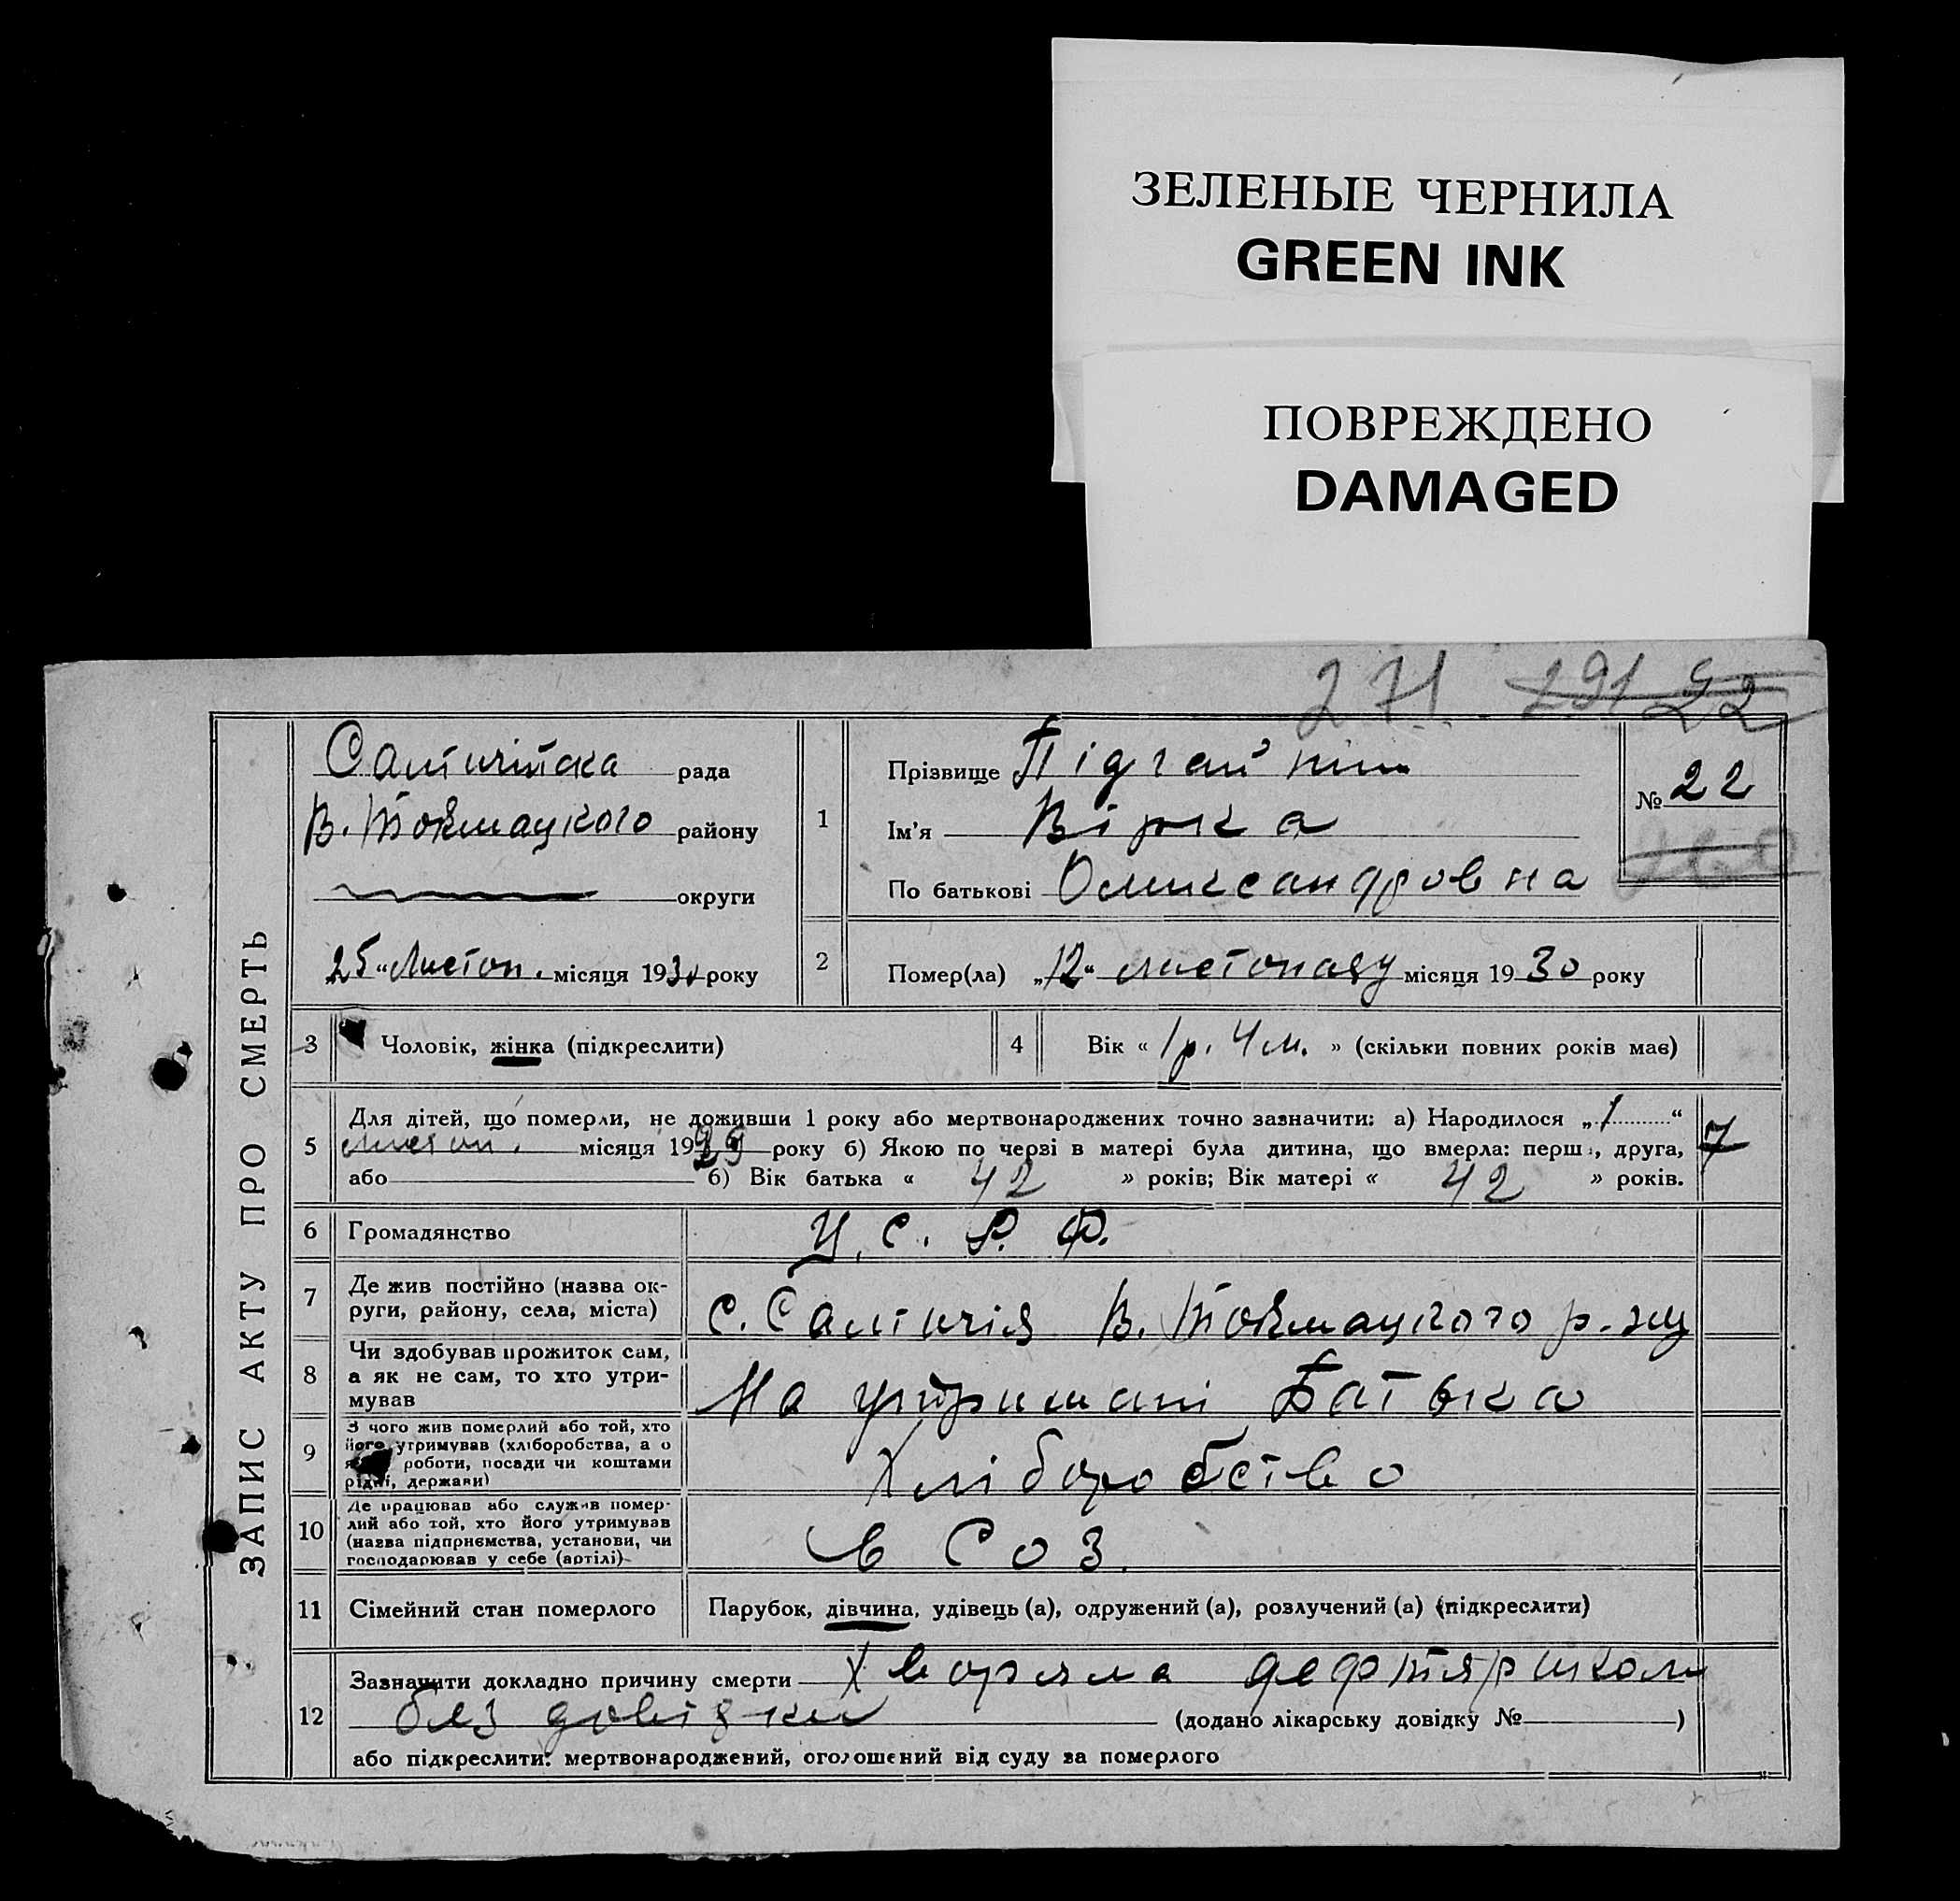 ЗЕЛЕНЫЕ ЧЕРНИЛА
GREEN INK
ПОВРЕЖДЕНО
DAMAGED
271 291 22
ЗАПИС АКТУ ПРО СМЕРТЬ
Салтичійска рада
В. Токмацкого району
округи
25 "Листоп. місяця 1930 року
1
Прізвище Підгайни
Ім'я Вірка
По батькові Олександровна
№ 22
2
Помер(ла) „12" листопаду місяця 1930 року
3
Чоловік, жінка (підкреслити)
4
Вік « 1 р. 4 м. » (скільки повних років має)
5
Для дітей, що померли, не доживши 1 року або мертвонароджених точно зазначити: а) Народилося „1"
місяця 1929 року б) Якою по черзі в матері була дитина, що вмерла: перша, друга, 7
або б) Вік батька « 42 » років; Вік матері « 42 » років.
6
Громадянство У. С. Р. Ф.
7
Де жив постійно (назва ок-
руги, району, села, міста)
с. Салтичія В. Токмацкого р-ну
8
Чи здобував прожиток сам,
а як не сам, то хто утри-
мував
На утримані Батька
9
З чого жив померлий або той, хто
його утримував (хліборобства, а о
роботи, посади чи коштами
рідні, держави)
Хліборобство
10
Де працював або служив помер-
лий або той, хто його утримував
(назва підприємства, установи, чи
господарював у себе (артілі)
в Соз
11
Сімейний стан померлого
Парубок, дівчина, удівець (а), одружений (а), розлучений (а) (підкреслити)
12
Зазначити докладно причину смерти Хворяла дефтяриком
без довідки (додано лікарську довідку № )
або підкреслити: мертвонароджений, оголошений від суду за померлого